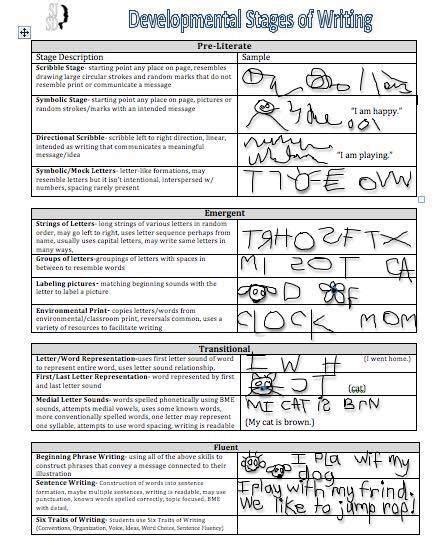 Developmental Stages of Writing
Pre-Literate
Stage Description
Sample
Scribble Stage- starting point any place on page, resembles
drawing large circular strokes and random marks that do not
resemble print or communicate a message
Symbolic Stage- starting point any place on page, pictures or
random strokes/marks with an intended message
"I am happy."
Directional Scribble- scribble left to right direction, linear,
intended as writing that communicates a meaningful
message/idea
"I am playing."
Symbolic/Mock Letters- letter-like formations, may
resemble letters but it isn't intentional, interspersed w/
numbers, spacing rarely present
Emergent
Strings of Letters- long strings of various letters in random
order, may go left to right, uses letter sequence perhaps from
name, usually uses capital letters, may write same letters in
many ways,
Groups of letters-groupings of letters with spaces in
between to resemble words
MI SOT CA
Labeling pictures- matching beginning sounds with the
letter to label a picture.
D F
Environmental Print- copies letters/words from
environmental/classroom print, reversals common, uses a
variety of resources to facilitate writing
CLOCK MOM
Transitional
Letter/Word Representation-uses first letter sound of word
to represent entire word, uses letter sound relationship,
I W H
(I went home.)
First/Last Letter Representation- word represented by first
and last letter sound
CT
(cat)
Medial Letter Sounds- words spelled phonetically using BME
sounds, attempts medial vowels, uses some known words,
more conventionally spelled words, one letter may represent
one syllable, attempts to use word spacing, writing is readable
MI CAT iS BRN
(My cat is brown.)
Fluent
Beginning Phrase Writing- using all of the above skills to
construct phrases that convey a message connected to their
illustration
I pla wif my
dog
Sentence Writing- Construction of words into sentence
formation, maybe multiple sentences, writing is readable, may use
punctuation, known words spelled correctly, topic focused, BME
with detail,
I play with my frind.
We like to jump rop!
Six Traits of Writing- Students use Six Traits of Writing
(Conventions, Organization, Voice, Ideas, Word Choice, Sentence Fluency)